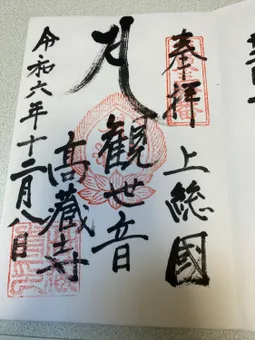 奉拝 上総國
観世音
髙藏寺
令和六年十二月八日